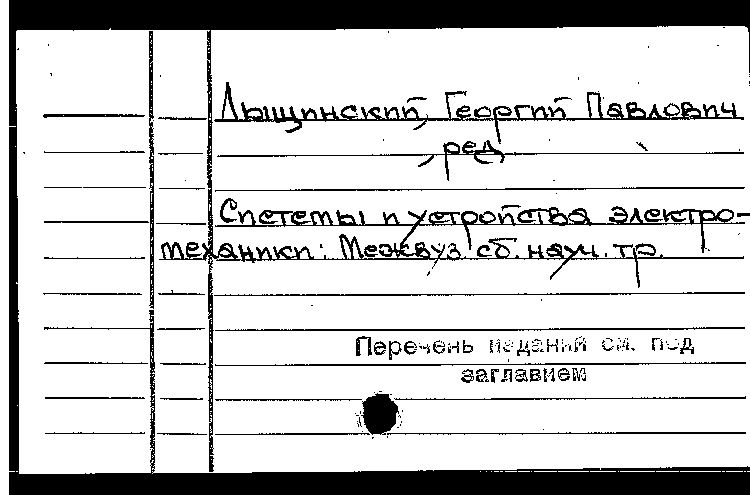 Лыщинский, Георгий Павлович
, ред.
Системы и устройства электро-
механики: Межвуз. сб. науч. тр.
Перечень изданий см. под
заглавием